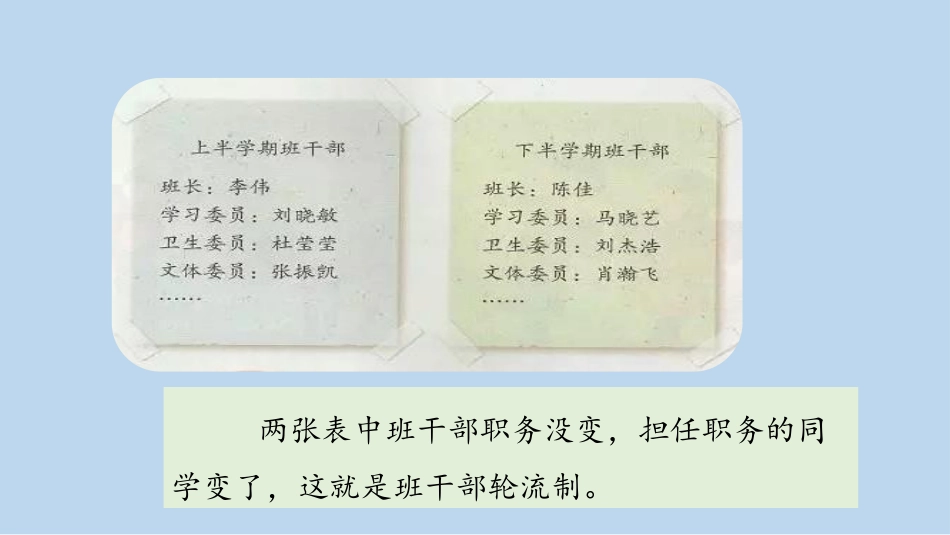 上半学期班干部
班长：李伟
学习委员：刘晓敏
卫生委员：杜莹莹
文体委员：张振凯
……
下半学期班干部
班长：陈佳
学习委员：马晓艺
卫生委员：刘杰浩
文体委员：肖瀚飞
……
两张表中班干部职务没变，担任职务的同
学变了，这就是班干部轮流制。